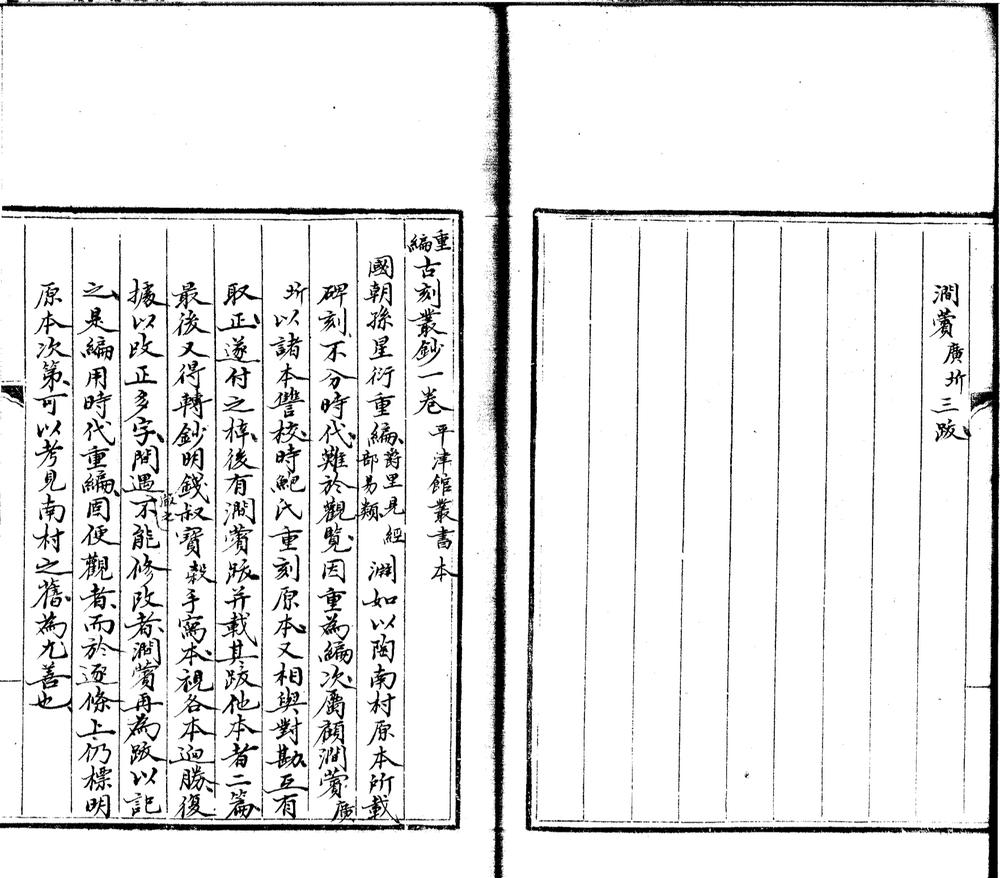 澗薲廣圻三跋
重編古刻叢鈔一卷平津館叢書本
國朝孫星衍重編爵里見經部易類淵如以陶南村原本所載
碑刻不分時代難於觀覽因重為編次屬顧澗薲廣
圻以諸本讐校時鮑氏重刻原本又相與對勘互有
取正遂付之梓後有澗薲跋并載其跋他本者二篇
最後又得轉鈔明錢叔寶榖手寫本視各本逈勝復
據以改正多字間遇不能修改者澗薲再為跋以記
之是編用時代重編固便觀者而於逐條上仍標明
原本次第可以考見南村之舊為尤善也